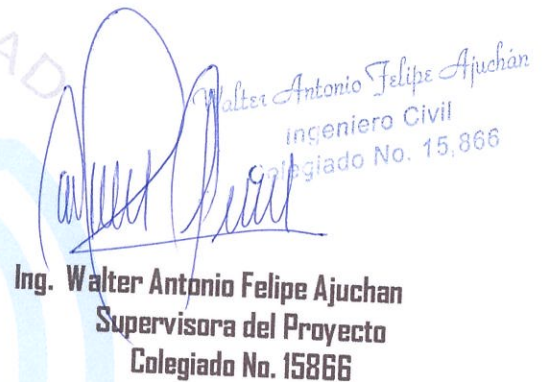 AD
Walter Antonio Felipe Ajuchán
Ingeniero Civil
Colegiado No. 15,866
Ing. Walter Antonio Felipe Ajuchan
Supervisora del Proyecto
Colegiado No. 15866